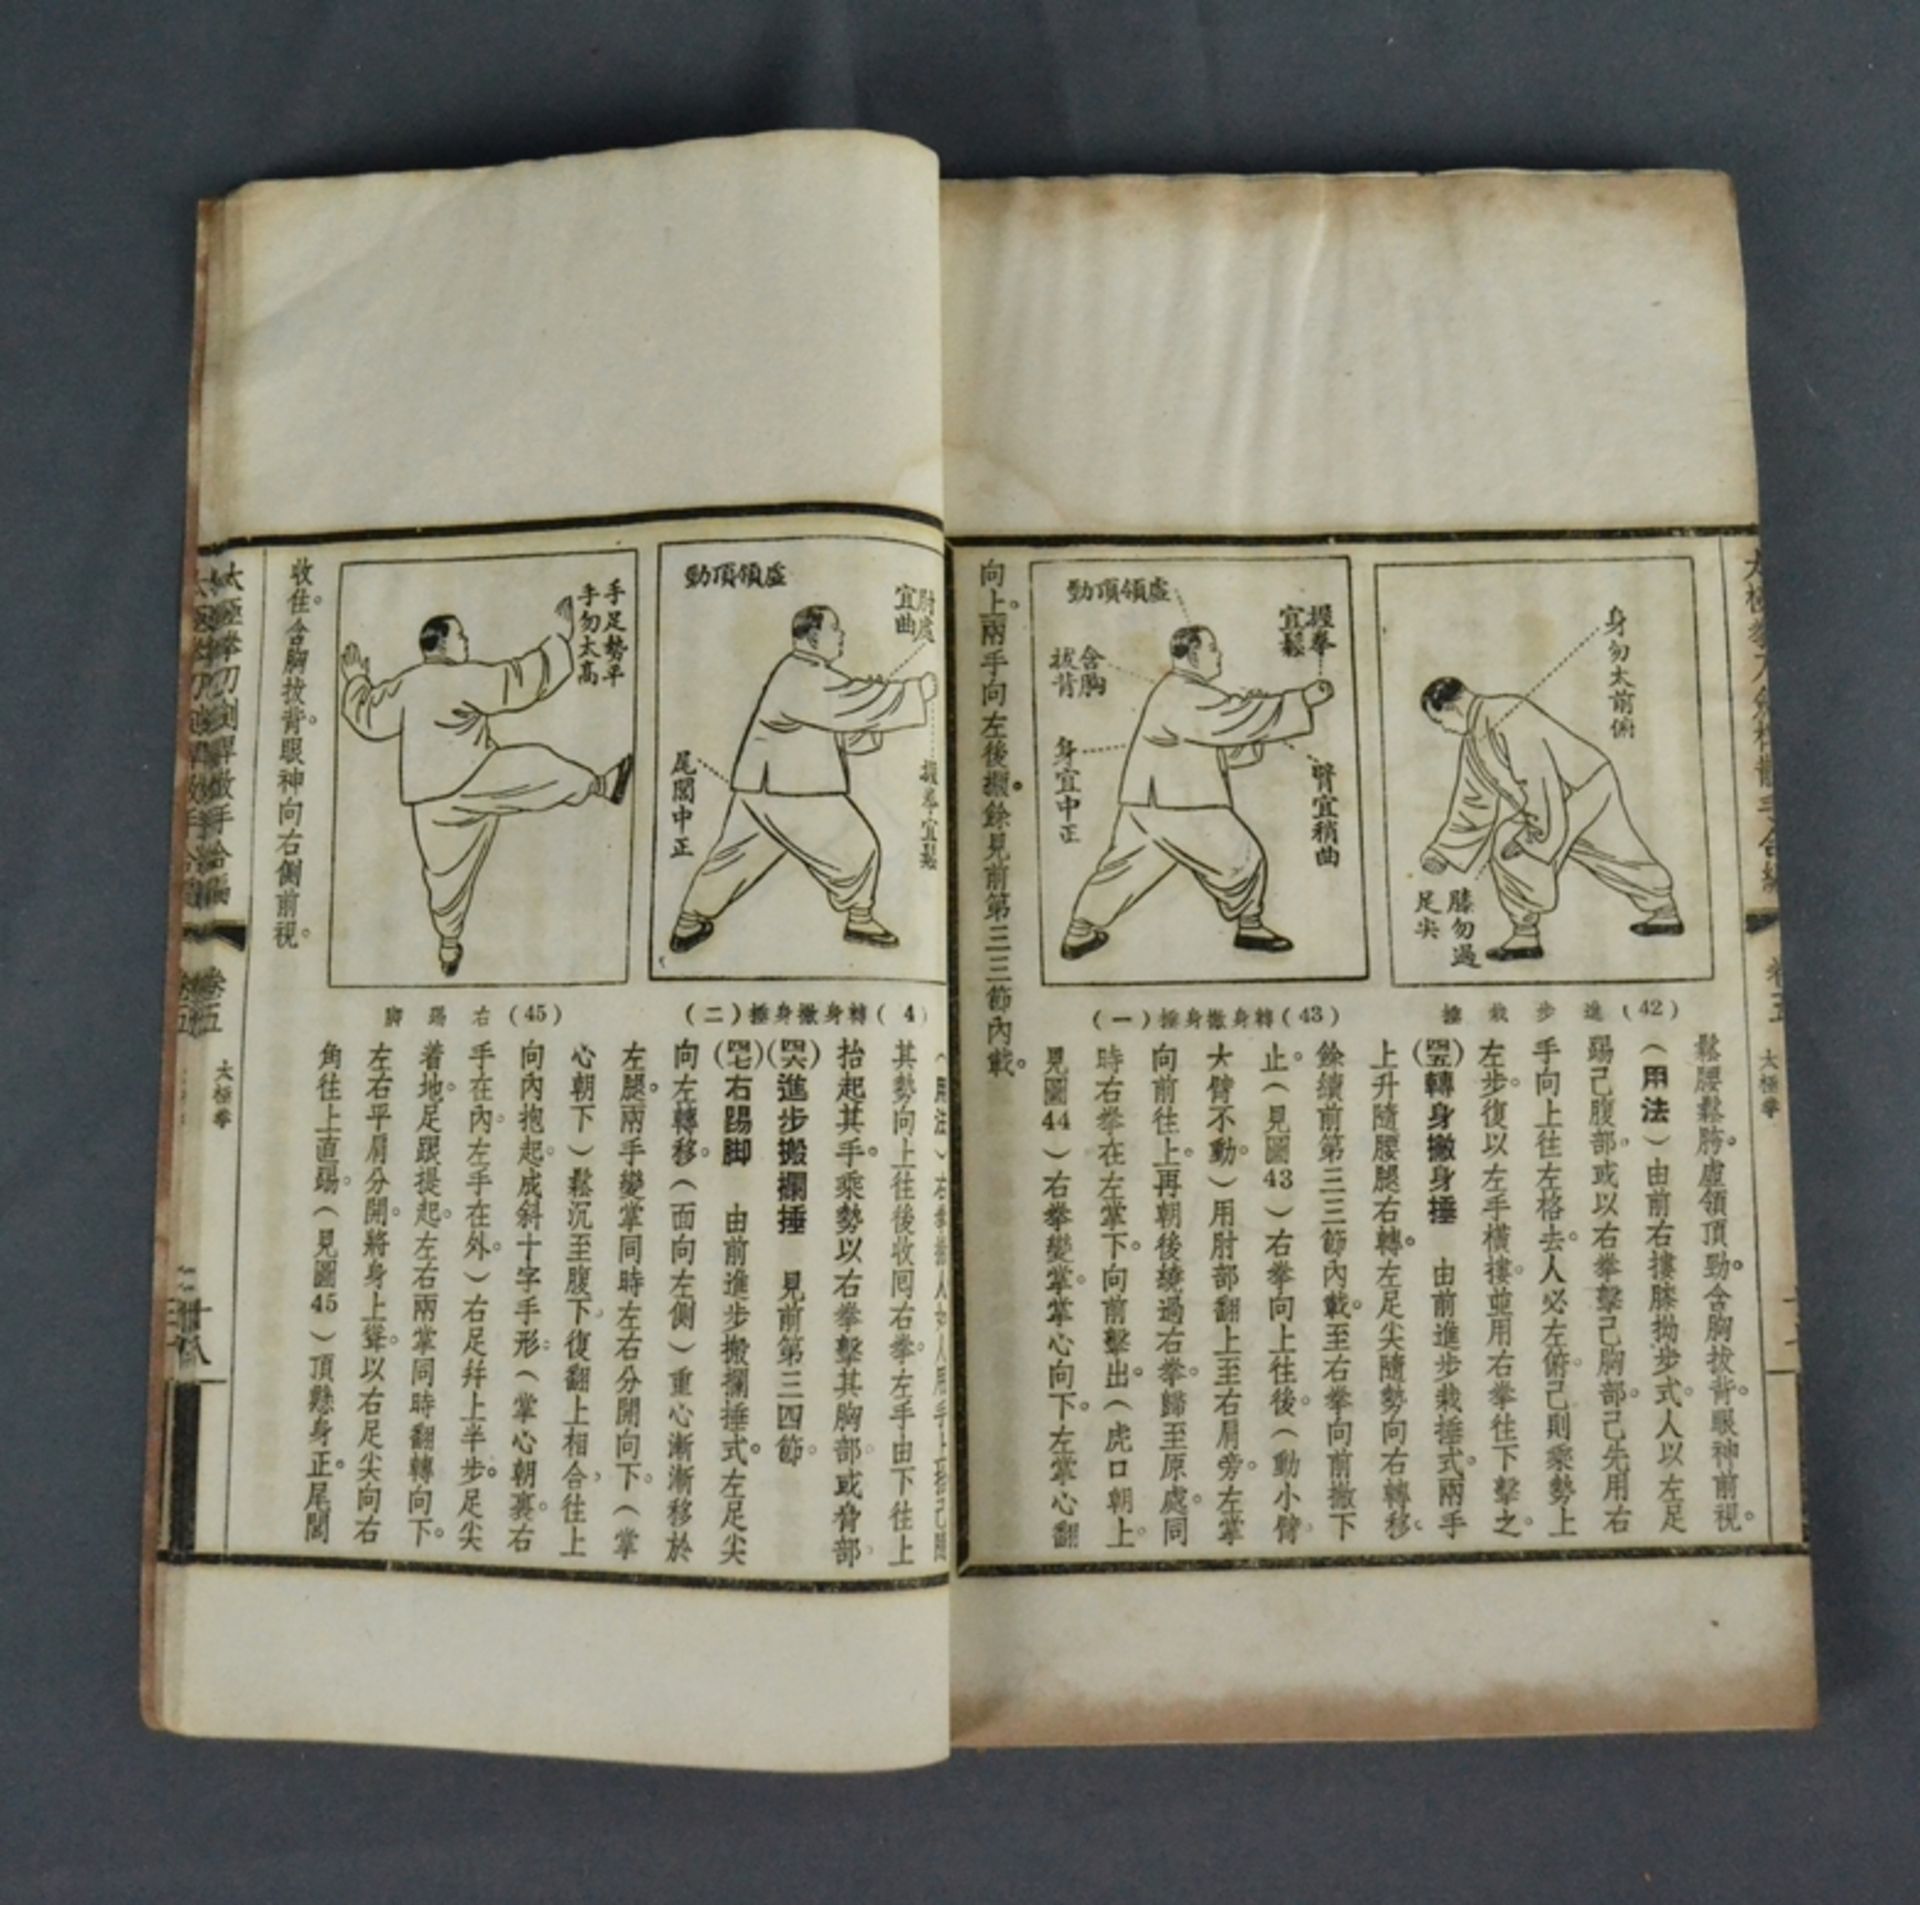 身勿太前俯
膝勿過
足尖
(42)進步栽捶
握拳
宜鬆
虛領頂勁
含胸
拔背
身宜中正
臂宜稍曲
(43)轉身撇身捶(一)
太極拳
鬆腰鬆胯。虛領頂勁。含胸拔背。眼神前視。
(用法)由前右摟膝拗步式。人以左足
踢己腹部。或以右拳擊己胸部。己先用右
手向上往左格去。人必左俯。己則乘勢上
左步。復以左手橫摟。並用右拳往下擊之。
(四五)轉身撇身捶　由前進步栽捶式。兩手
上升隨腰腿右轉。左足尖隨勢向右轉移。
餘續前第三三節內載。至右拳向前撇下
止。(見圖43)右拳向上往後。(動小臂
大臂不動)用肘部翻上至右肩旁。左掌
向前往上。再朝後繞過右拳。歸至原處。同
時右拳在左掌下。向前擊出。(虎口朝上。
見圖44)右拳變掌。掌心向下。左掌心翻
向上。兩手向左後攦。餘見前第三三節內載。
虛領頂勁
肘處
宜曲
握拳宜鬆
尾閭中正
轉身撇身捶(二)
手足勢平
手勿太高
(45)右踢脚
其勢向上往後收囘右拳。左手由下往上
抬起其手。乘勢以右拳擊其胸部或脅部。
(四六)進步搬攔捶　見前第三四節。
(四七)右踢脚　由前進步搬攔捶式。左足尖
向左轉移。(面向左側)重心漸漸移於
左腿。兩手變掌同時左右分開向下。(掌
心朝下)鬆沉至腹下。復翻上相合。往上
向內抱起。成斜十字手形。(掌心朝裏。右
手在內。左手在外。)右足幷上半步。足尖
着地。足跟提起。左右兩掌同時翻轉向下。
左右平肩分開。將身上聳。以右足尖向右
角往上直踢。(見圖45)頂懸身正。尾閭
收住。含胸拔背。眼神向右側前視。
卷五
太極拳